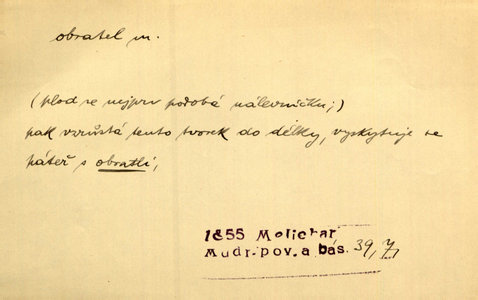 obratel m.
(plod se nejprv podobá nálevníčku;)
pak vzrůstá tento tvorek do délky, vyskytuje se
páteř s obratli,
1855 Melichar
Mudr. pov. a bás. 39,7,